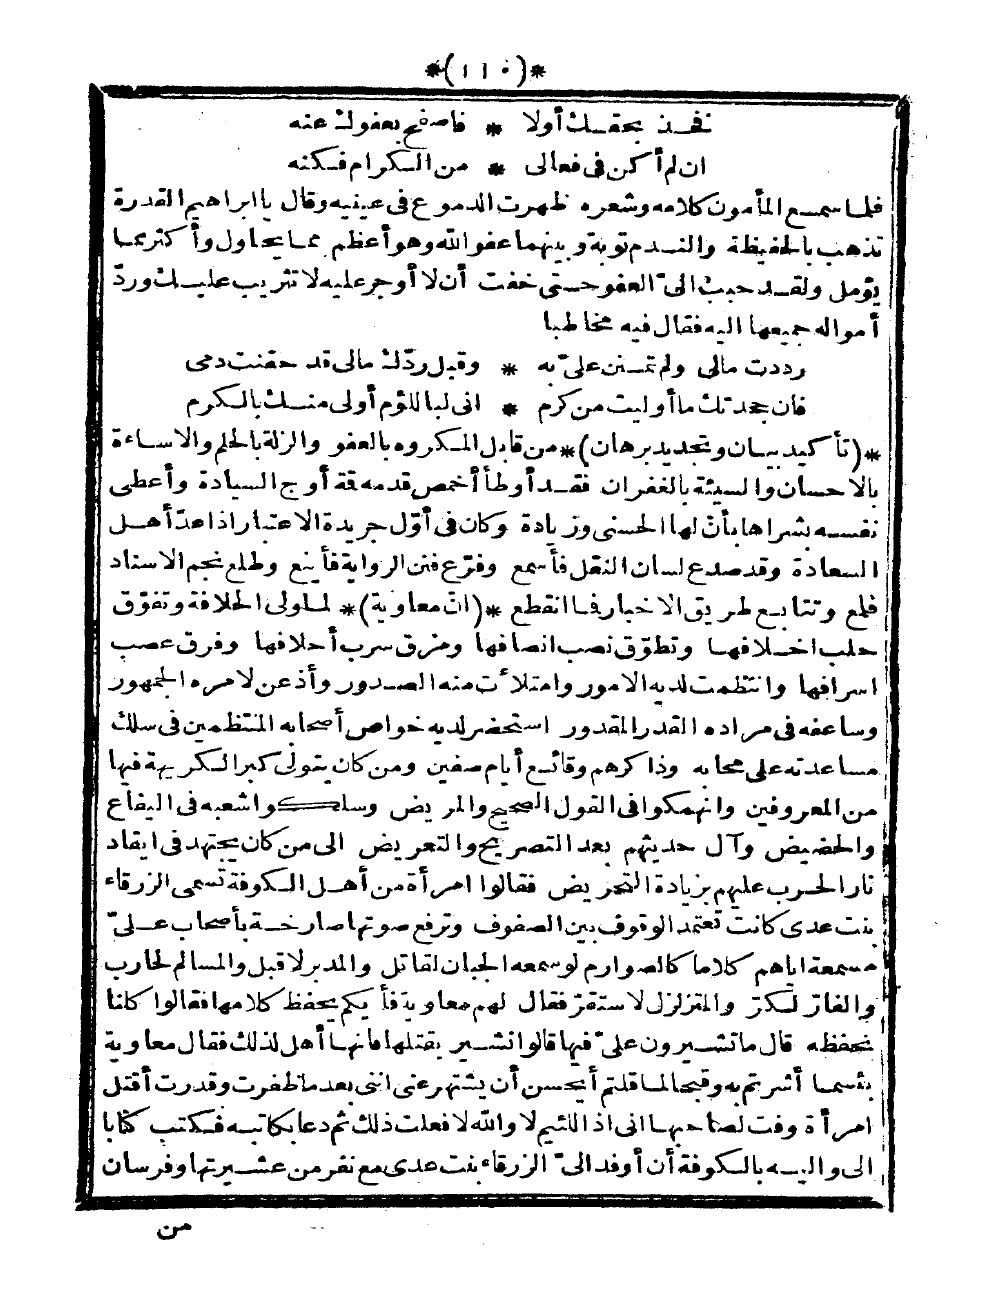 *(١١٠)*
نفخذ بحقك أولا * فاصفح بعفوك عنه
ان لم أكن فى فعالى * من الكرام فكنه
فلما سمع المأمون كلامه وشعره ظهرت الدموع فى عينيه وقال يا ابراهيم القدرة
تذهب بالحفيظة والندم توبة وبينهما عفو الله وهو أعظم مما يحاول وأكثر مما
يؤمل ولقد حبب الىّ العفو حتى خفت أن لا أوجر عليه لا تثريب عليك وردّ
أمواله جميعها اليه فقال فيه مخاطبا
رددت مالى ولم تمنن علىّ به * وقبل ردّك مالى قد حقنت دمى
فان جحدتك ما أوليت من كرم * انى لباللؤم أولى منك بالكرم
*(تأكيد بيان وتجديد برهان)* من قابل المكروه بالعفو والزلة بالحلم والاساءة
بالاحسان والسيئة بالغفران فقد أوطأ أخمص قدمه قمة أوج السيادة وأعطى
نفسه بشراها بأنّ لها الحسنى وزيادة وكان فى أوّل جريدة الاعتبار اذا عدّ أهل
السعادة وقد صدع لسان النقل فأسمع وفرّع فنن الرواية فأينع وطلع نجم الاسناد
فلمع وتتابع طريق الاخبار فما انقطع *(انّ معاوية)* لما ولى الخلافة وتفوّق
حلب اخلافها وتطوّق نصب انصافها ومزق سرب أحلافها وفرق عصب
اسرافها وانتظمت لديه الامور وامتلأت منه الصدور وأذعن لامره الجمهور
وساعفه فى مراده القدر المقدور استحضر لديه خواص أصحابه المنتظمين فى سلك
مساعدته على محابه وذاكرهم وقائع أيام صفين ومن كان يتولى كبر الكريهة فيها
من المعروفين وانهمكوا فى القول الصحيح والمريض وسلكوا شعبه فى اليفاع
والحضيض وآل حديثهم بعد التصريح والتعريض الى من كان يجتهد فى ايقاد
نار الحرب عليهم بزيادة التحريض فقالوا امرأة من أهل الكوفة تسمى الزرقاء
بنت عدى كانت تعتمد الوقوف بين الصفوف وترفع صوتها صارخة بأصحاب علىّ
مسمعة اياهم كلاما كالصوارم لو سمعه الجبان لقاتل والمدبر لاقبل والمسالم لحارب
والفار لكرّ والمتزلزل لاستقرّ فقال لهم معاوية فأيكم يحفظ كلامها فقالوا كلنا
نحفظه قال ما تشيرون علىّ فيها قالوا نشير بقتلها فانها أهل لذلك فقال معاوية
بئسما أشرتم به وقبحا لما قلتم أيحسن أن يشتهر عنى اننى بعد ما ظفرت وقدرت أقتل
امرأة وفت لصاحبها انى اذا للئيم لا والله لا فعلت ذلك ثم دعا بكاتبه فكتب كتابا
الى واليه بالكوفة أن أوفد الىّ الزرقاء بنت عدى مع نفر من عشيرتها وفرسان
من